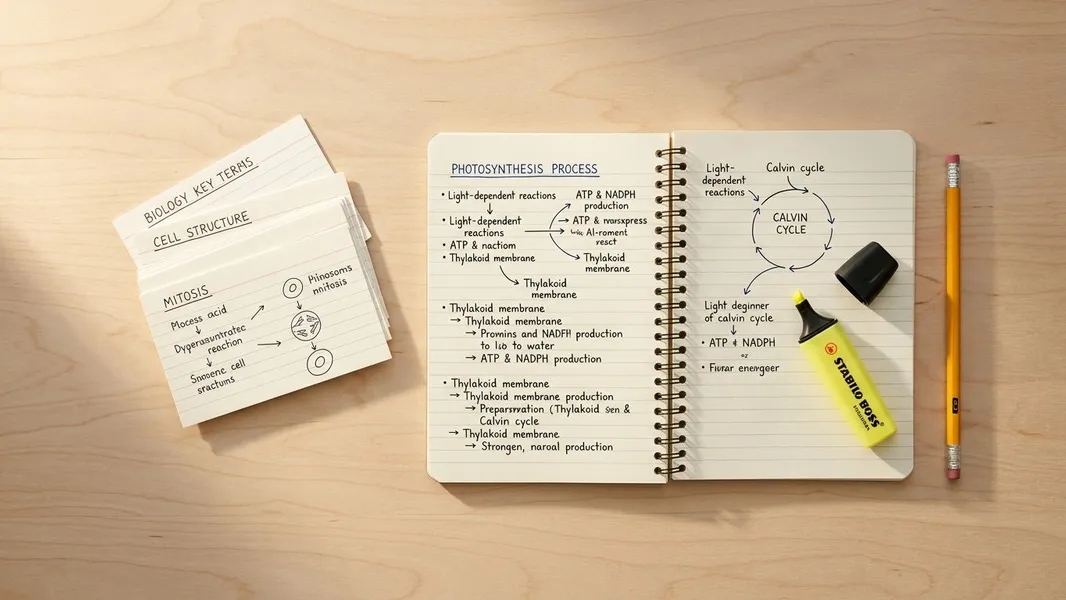 BIOLOGY KEY TERMS
CELL STRUCTURE
MITOSIS
Plocess acid
reaction
cell
PHOTOSYNTHESIS PROCESS
• Light-dependent reactions
• Light-dependent
reactions
• ATP & naction
• Thylakoid membrane
ATP & NADPH
production
→ ATP &
Thylakoid
membrane
Thylakoid
membrane
• Thylakoid membrane
→ Thylakoid membrane
→ Prownins and NADFH production
to lib to water
→ ATP & NADPH production
• Thylakoid membrane
→ Thylakoid membrane production
→ (Thylakoid &
Calvin cycle
→ Thylakoid membrane
→ Strongen, naroal production
Light-
dependent
reactions
Calvin cycle
CALVIN
CYCLE
Light deginner
of calvin cycle
• ATP & NADPH
• energeer
STABILO BOSS